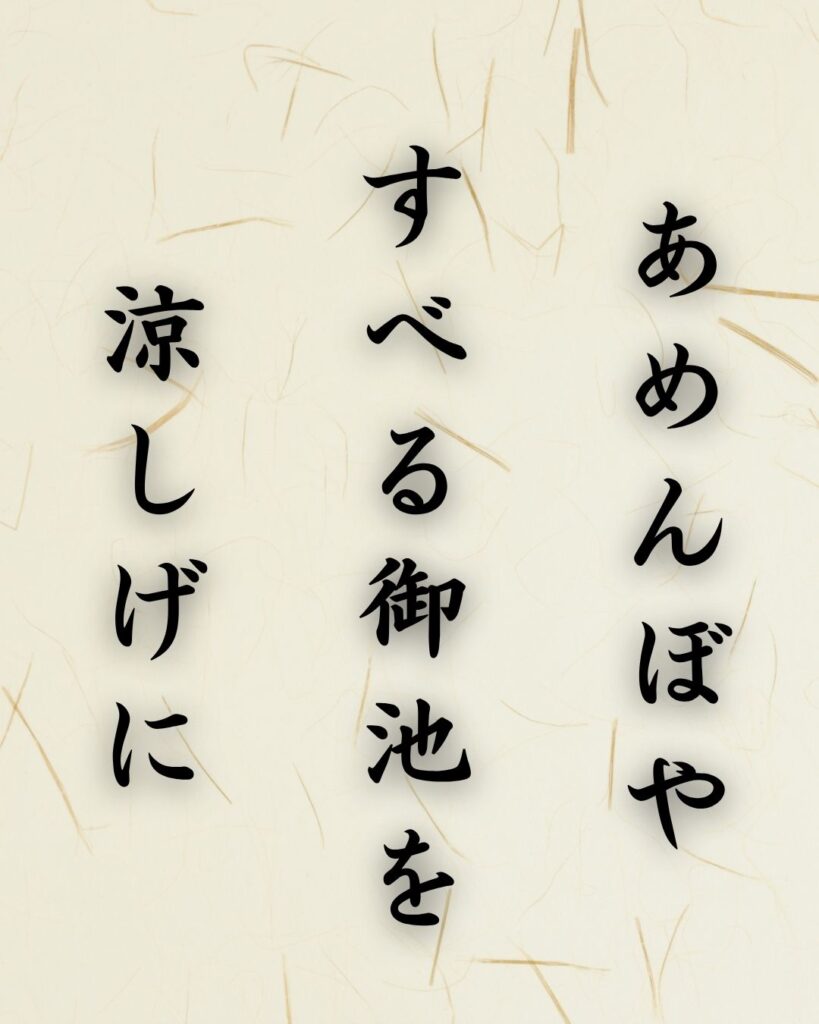 あめんぼや
すべる御池を
涼しげに